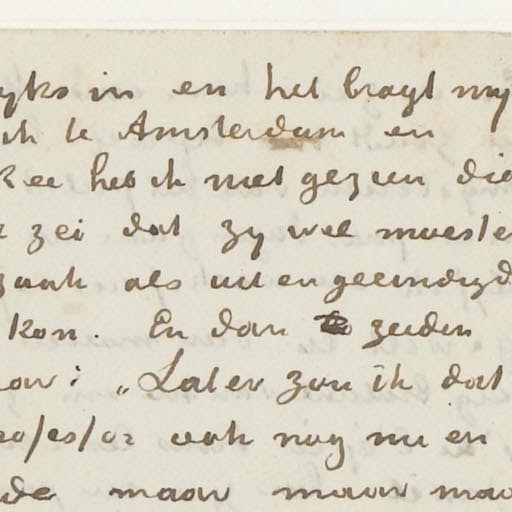 yks in en het bragt my
ik te Amsterdam en
Kee heb ik niet gezien die
zei dat zy wel moesten
zaak als uit en geeindigd
kon. En dan zeiden
„Later zou ik dat
professor ook nog nu en
de maar maar maar